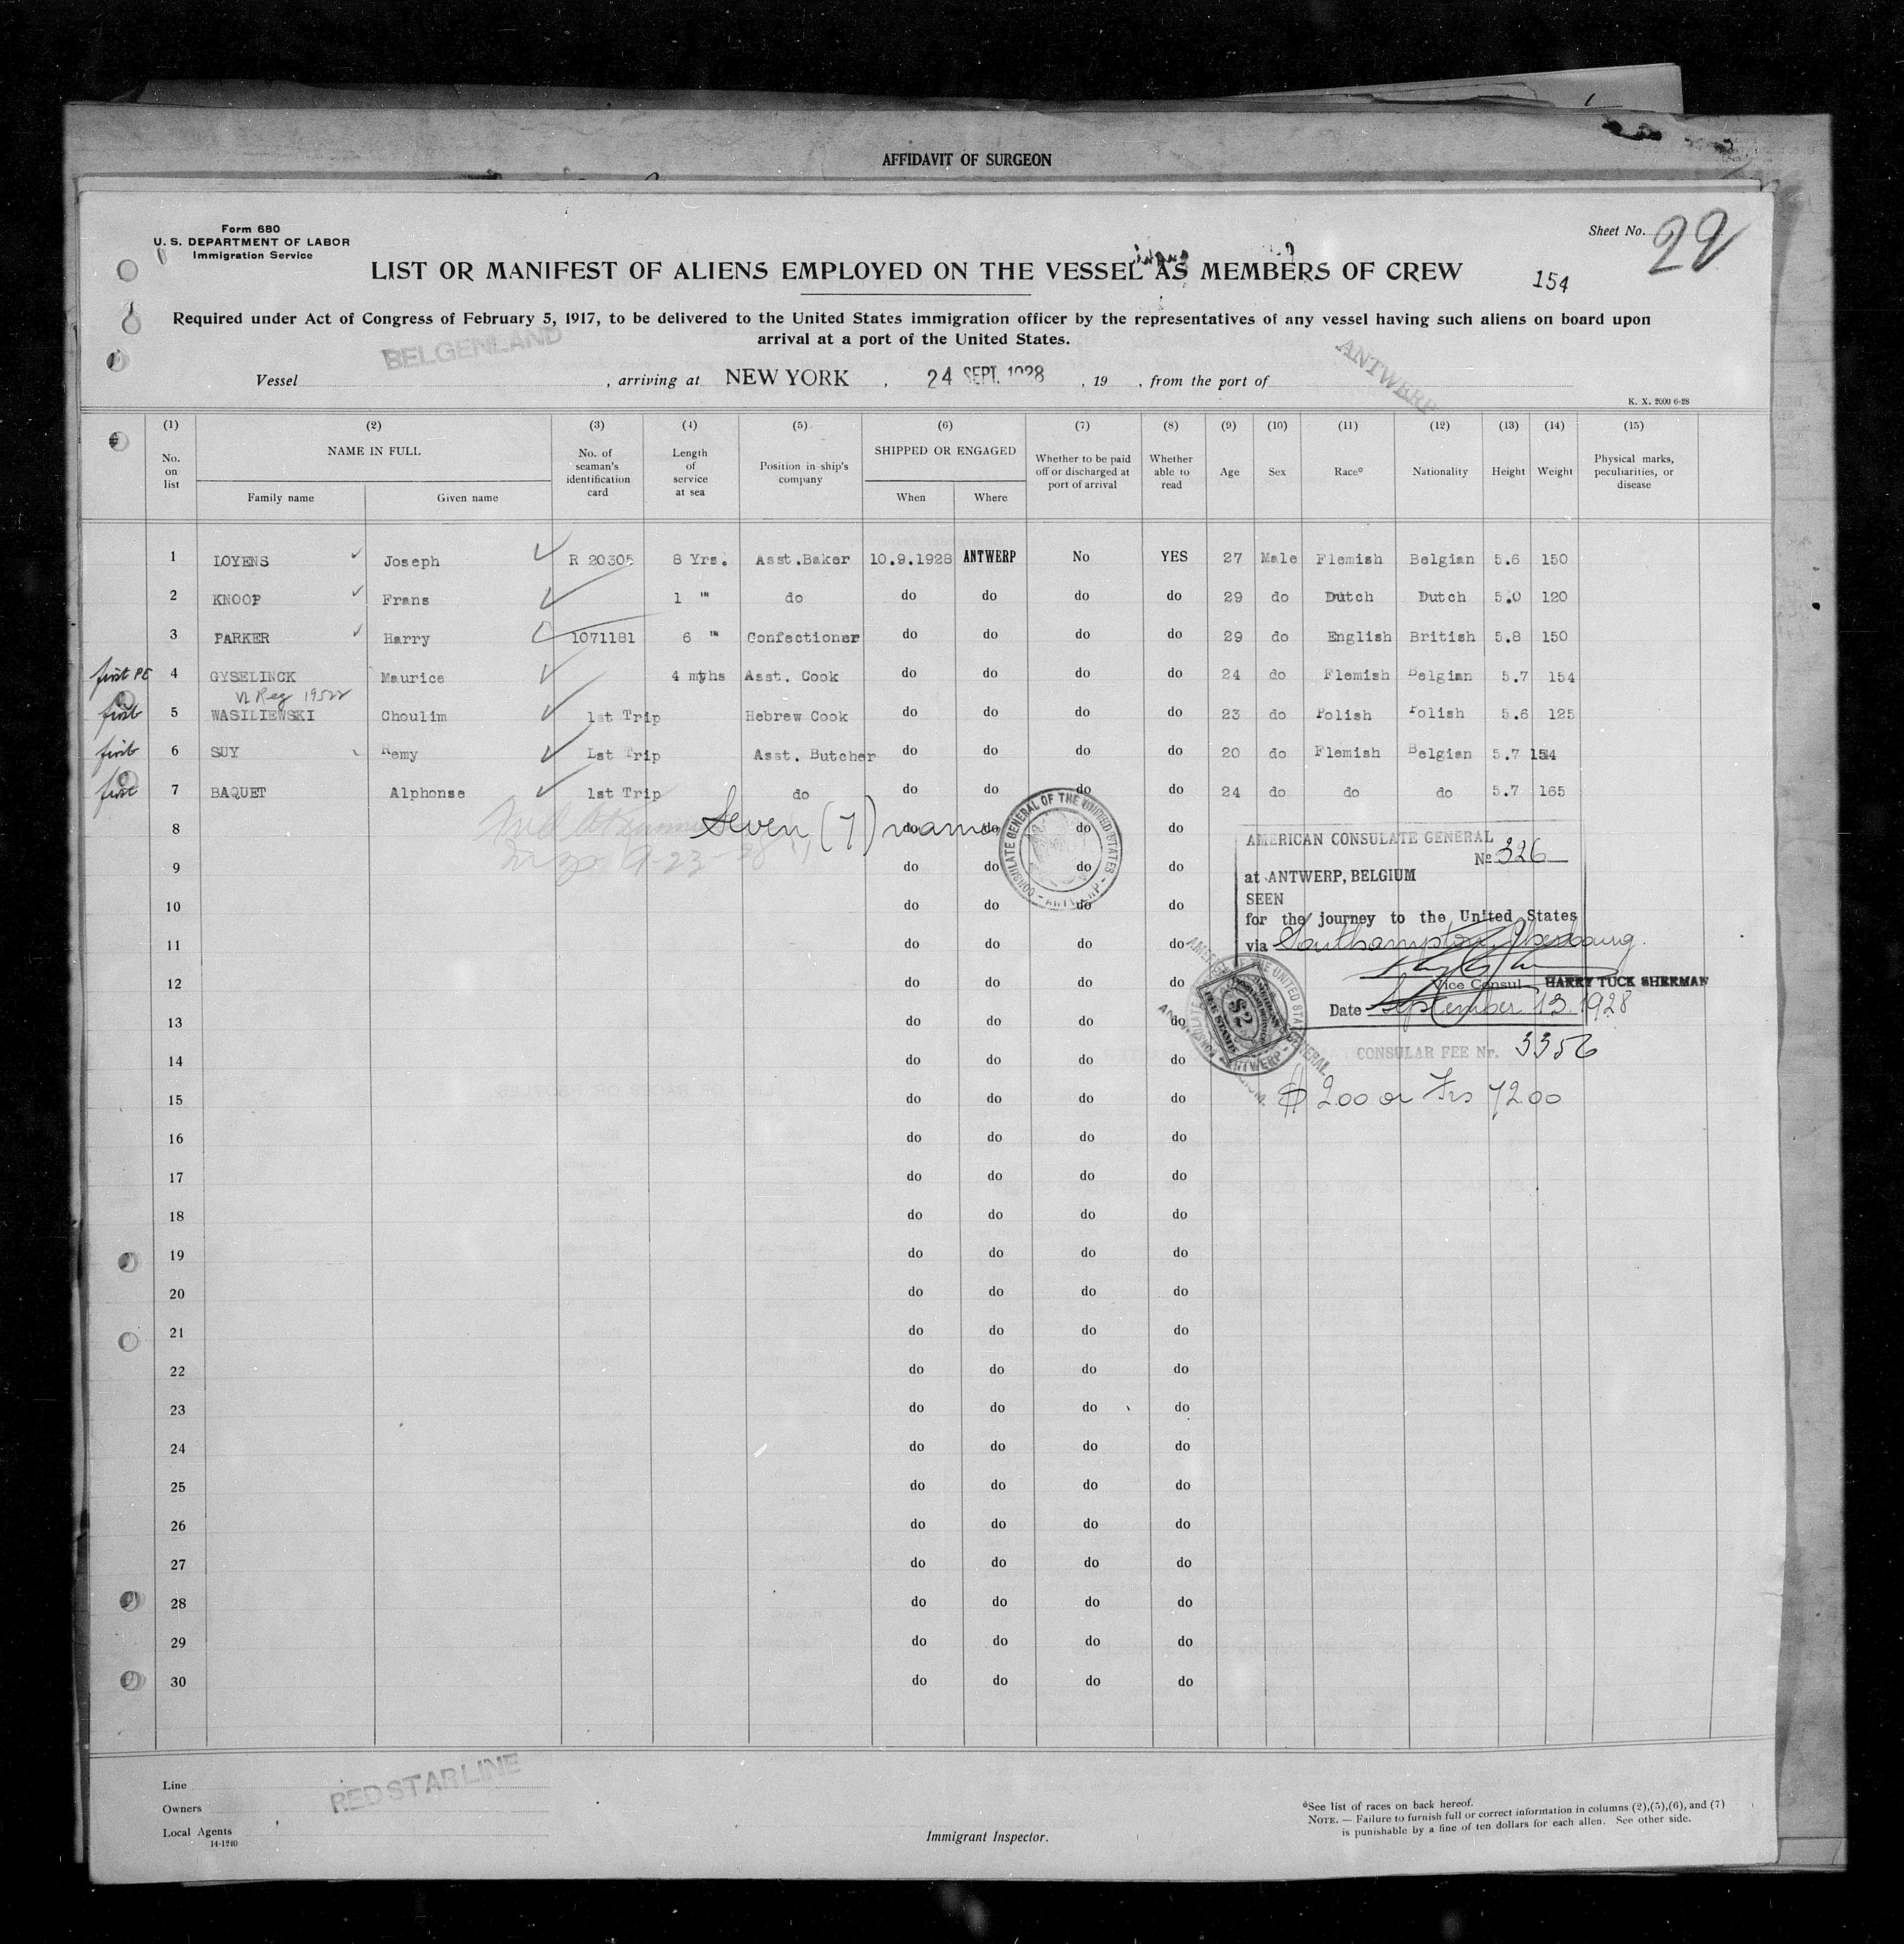 AFFIDAVIT OF SURGEON
Form 680
U. S. DEPARTMENT OF LABOR
Immigration Service
Sheet No. 22
LIST OR MANIFEST OF ALIENS EMPLOYED ON THE VESSEL AS MEMBERS OF CREW
154
Required under Act of Congress of February 5, 1917, to be delivered to the United States immigration officer by the representatives of any vessel having such aliens on board upon
arrival at a port of the United States.
Vessel BELGENLAND, arriving at NEW YORK, 24 SEPT. 1928, 19 , from the port of ANTWERP
K. X. 2000 6-28
(1) (2) (3) (4) (5) (6) (7) (8) (9) (10) (11) (12) (13) (14) (15)
No. on list
NAME IN FULL
Family name Given name
No. of seaman's identification card
Length of service at sea
Position in ship's company
SHIPPED OR ENGAGED
When Where
Whether to be paid off or discharged at port of arrival
Whether able to read
Age Sex Race* Nationality Height Weight
Physical marks, peculiarities, or disease
1 LOYENS Joseph R 20305 8 Yrs. Asst.Baker 10.9.1928 ANTWERP No YES 27 Male Flemish Belgian 5.6 150
2 KNOOP Frans 1 " do do do do do 29 do Dutch Dutch 5.0 120
3 PARKER Harry 1071181 6 " Confectioner do do do do 29 do English British 5.8 150
first 4 GYSELINCK Maurice 4 mths Asst. Cook do do do do 24 do Flemish Belgian 5.7 154
Reg 19522
first 5 WASILIEWSKI Choulim 1st Trip Hebrew Cook do do do do 23 do Polish Polish 5.6 125
first 6 SUY Remy Lst Trip Asst. Butcher do do do do 20 do Flemish Belgian 5.7 154
first 7 BAQUET Alphonse 1st Trip do do do do do 24 do do do 5.7 165
8 Seven (7) names do do do do
9 9-23-28 do do do do
10 do do do do
11 do do do do
12 do do do do
13 do do do do
14 do do do do
15 do do do do
16 do do do do
17 do do do do
18 do do do do
19 do do do do
20 do do do do
21 do do do do
22 do do do do
23 do do do do
24 do do do do
25 do do do do
26 do do do do
27 do do do do
28 do do do do
29 do do do do
30 do do do do
CONSULATE GENERAL OF THE UNITED STATES - ANTWERP -
AMERICAN CONSULATE GENERAL
No 326
at ANTWERP, BELGIUM
SEEN
for the journey to the United States
via Southampton, Cherbourg.
Vice Consul HARRY TUCK SHERMAN
Date September 13. 1928
CONSULAR FEE Nr. 3356
$ 2.00 or Frs 72.00
$2
Line RED STAR LINE
Owners
Local Agents
14-1240
Immigrant Inspector.
*See list of races on back hereof.
NOTE. — Failure to furnish full or correct information in columns (2),(5),(6), and (7)
is punishable by a fine of ten dollars for each alien. See other side.